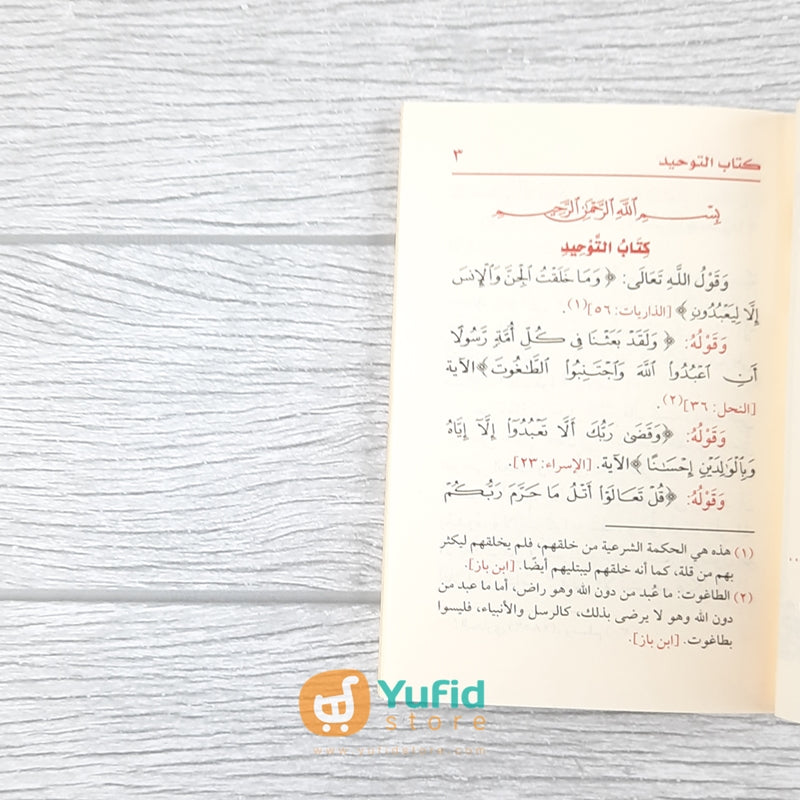 كتاب التوحيد ٣
بِسْمِ اللَّهِ الرَّحْمَٰنِ الرَّحِيمِ
كِتَابُ التَّوْحِيدِ
وَقَوْلُ اللَّهِ تَعَالَى: ﴿وَمَا خَلَقْتُ الْجِنَّ وَالْإِنسَ
إِلَّا لِيَعْبُدُونِ﴾ [الذاريات: ٥٦](١).
وَقَوْلُهُ: ﴿وَلَقَدْ بَعَثْنَا فِي كُلِّ أُمَّةٍ رَّسُولًا
أَنِ اعْبُدُوا اللَّهَ وَاجْتَنِبُوا الطَّاغُوتَ﴾ الآية
[النحل: ٣٦](٢).
وَقَوْلُهُ: ﴿وَقَضَىٰ رَبُّكَ أَلَّا تَعْبُدُوا إِلَّا إِيَّاهُ
وَبِالْوَالِدَيْنِ إِحْسَانًا﴾ الآية. [الإسراء: ٢٣].
وَقَوْلُهُ: ﴿قُلْ تَعَالَوْا أَتْلُ مَا حَرَّمَ رَبُّكُمْ
(١) هذه هي الحكمة الشرعية من خلقهم، فلم يخلقهم ليكثر
بهم من قلة، كما أنه خلقهم ليبتليهم أيضًا. [ابن باز].
(٢) الطاغوت: ما عُبد من دون الله وهو راض، أما ما عبد من
دون الله وهو لا يرضى بذلك، كالرسل والأنبياء، فليسوا
بطاغوت. [ابن باز].
Yufid
store
www.yufidstore.com